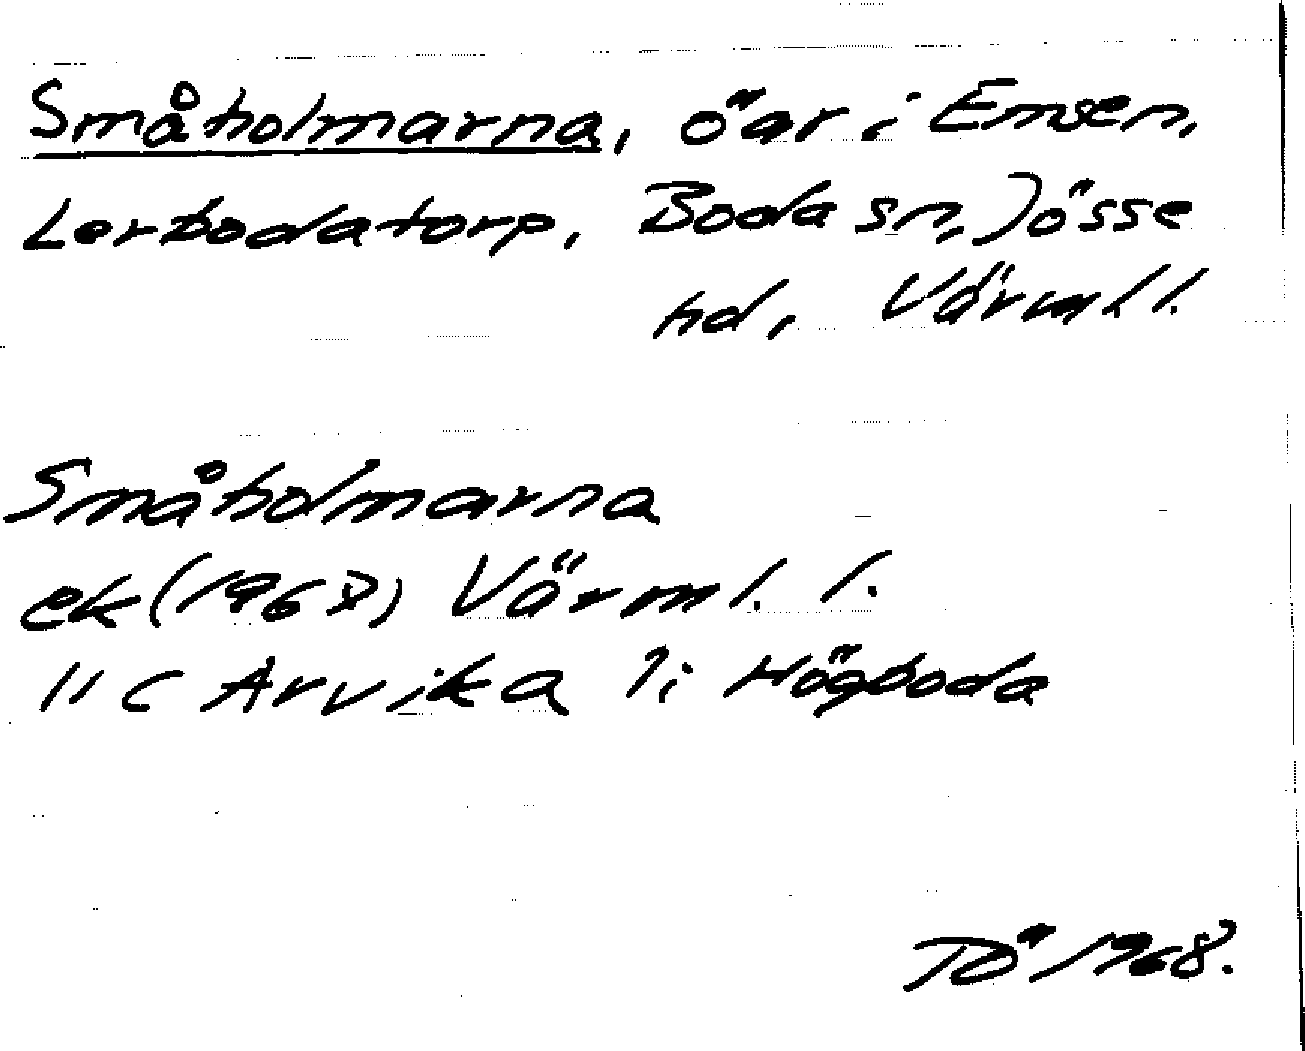 Småholmarna, öar i Emsen,
Lerbodatorp, Boda sn, Jösse
hd, Värml. l.
Småholmarna
ek (1968) Värml. l.
11 C Arvika 7i Högboda
TÖ 1968.